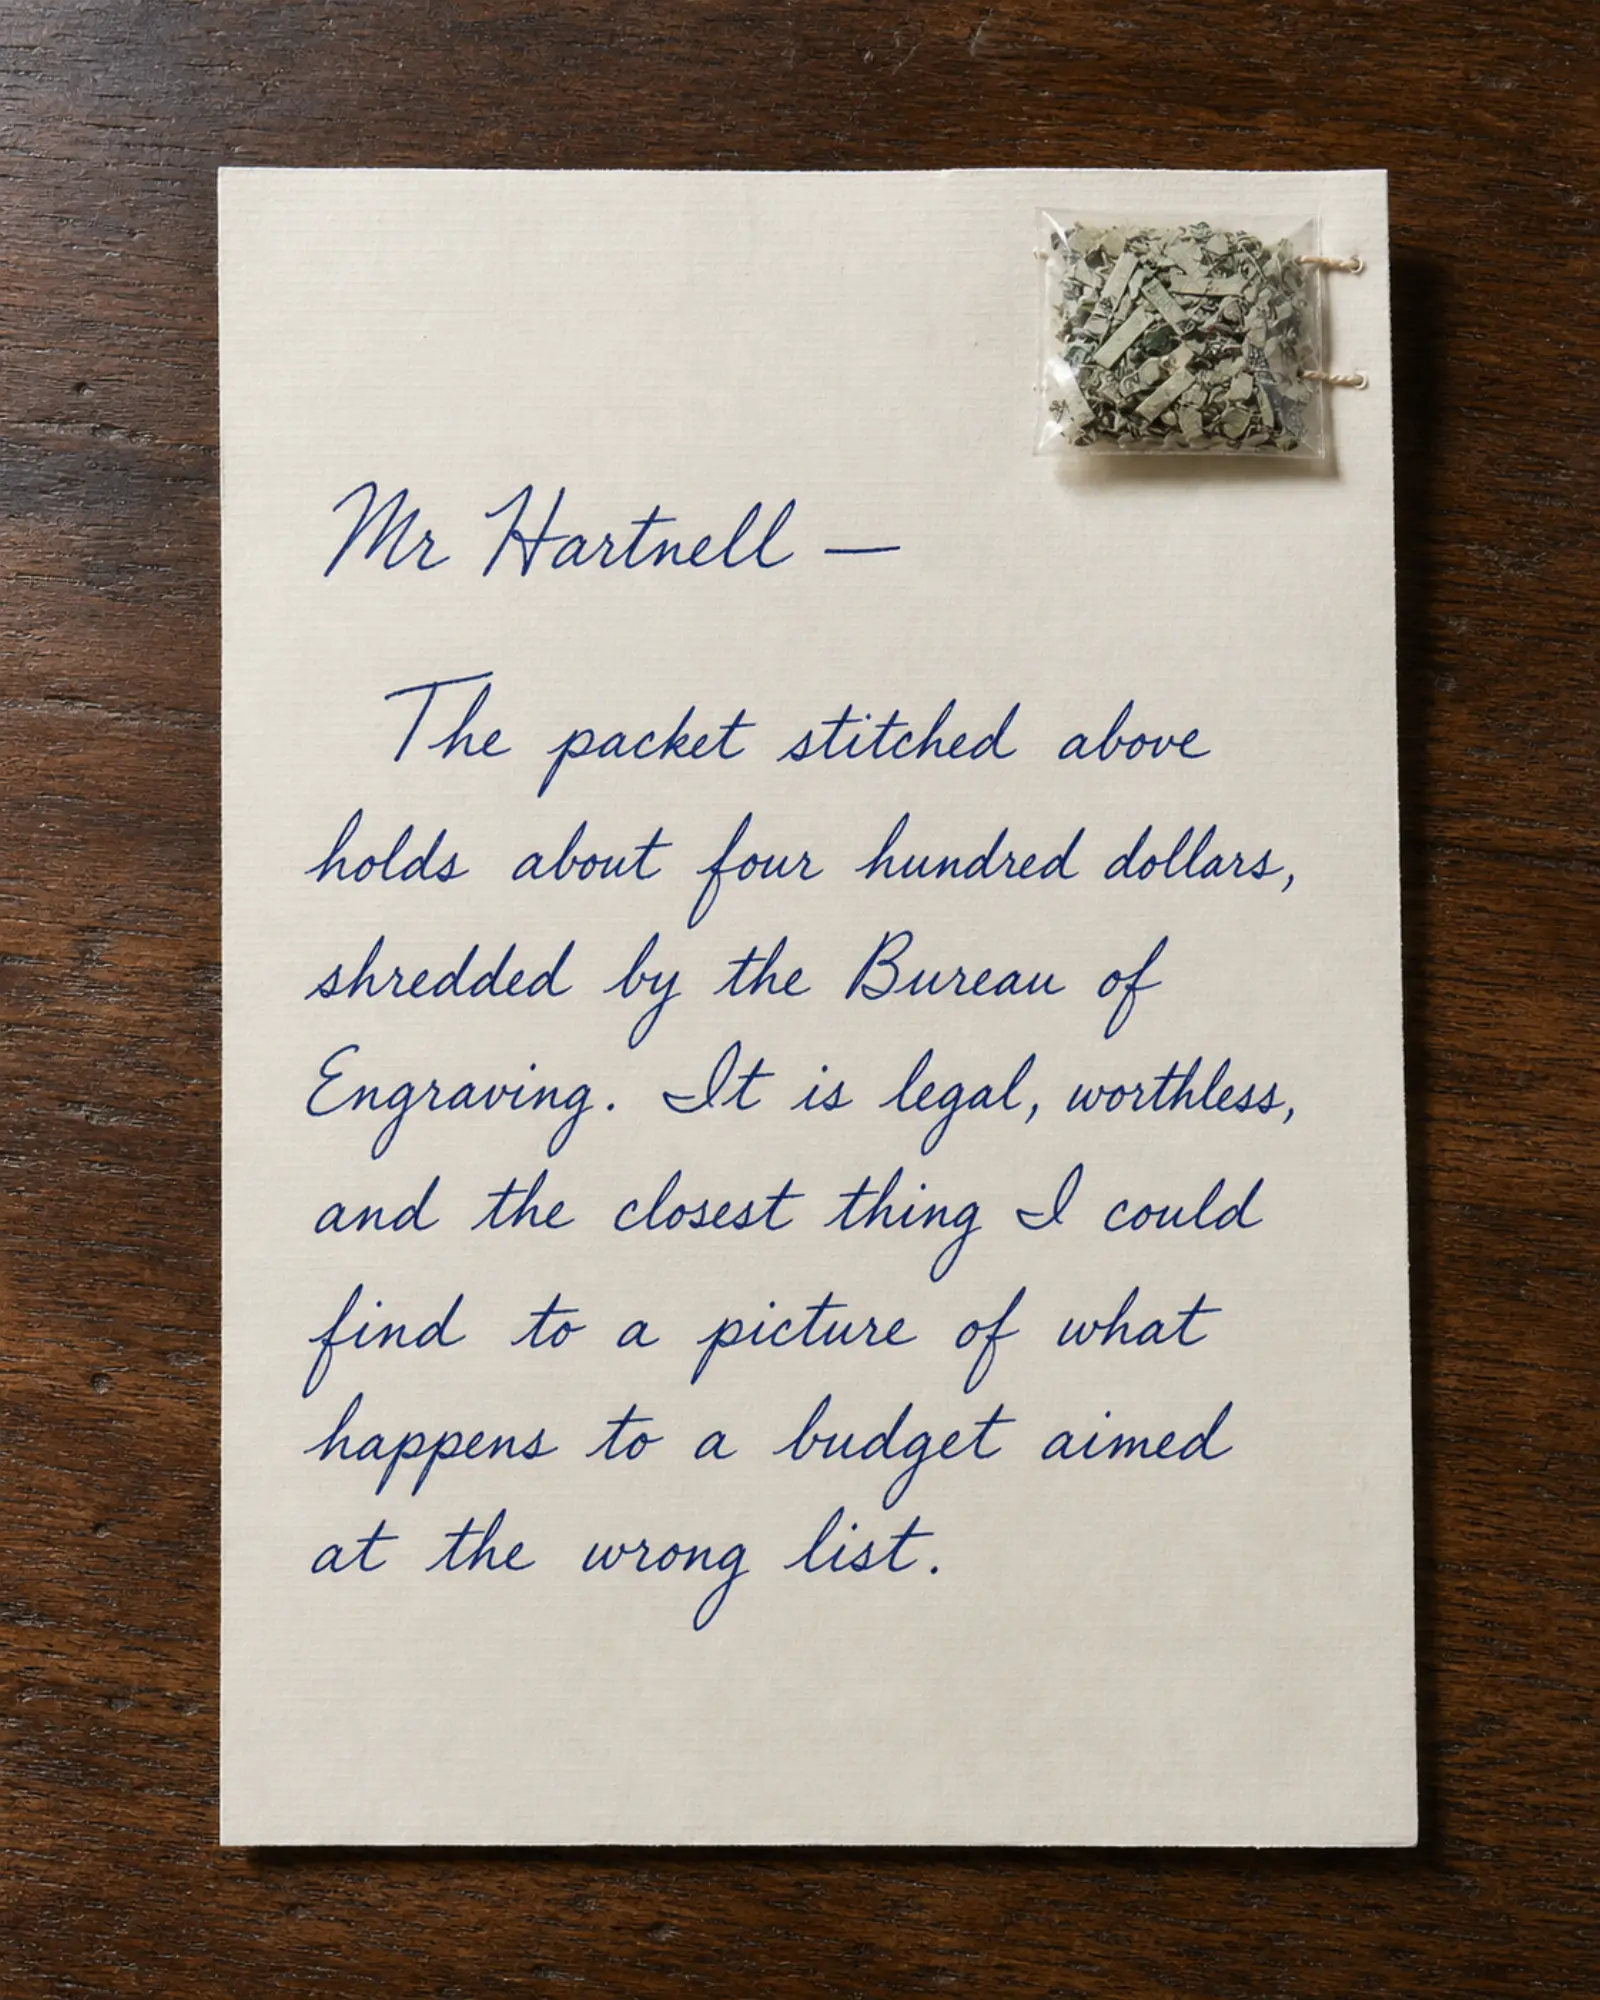 Mr Hartnell —
The packet stitched above
holds about four hundred dollars,
shredded by the Bureau of
Engraving. It is legal, worthless,
and the closest thing I could
find to a picture of what
happens to a budget aimed
at the wrong list.